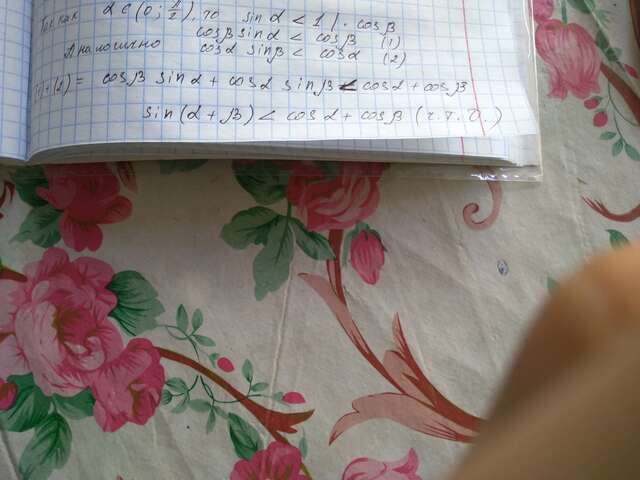 Так как α ∈ (0; π/2), то sin α < 1 | · cos β
cos β sin α < cos β (1)
Аналогично cos α sin β < cos α (2)
(1) + (2) = cos β sin α + cos α sin β < cos α + cos β
sin (α + β) < cos α + cos β (ч. т. д.)